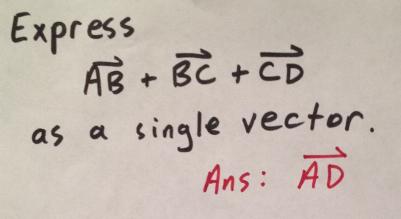 Express
$\overrightarrow{AB} + \overrightarrow{BC} + \overrightarrow{CD}$
as a single vector.
Ans: $\overrightarrow{AD}$